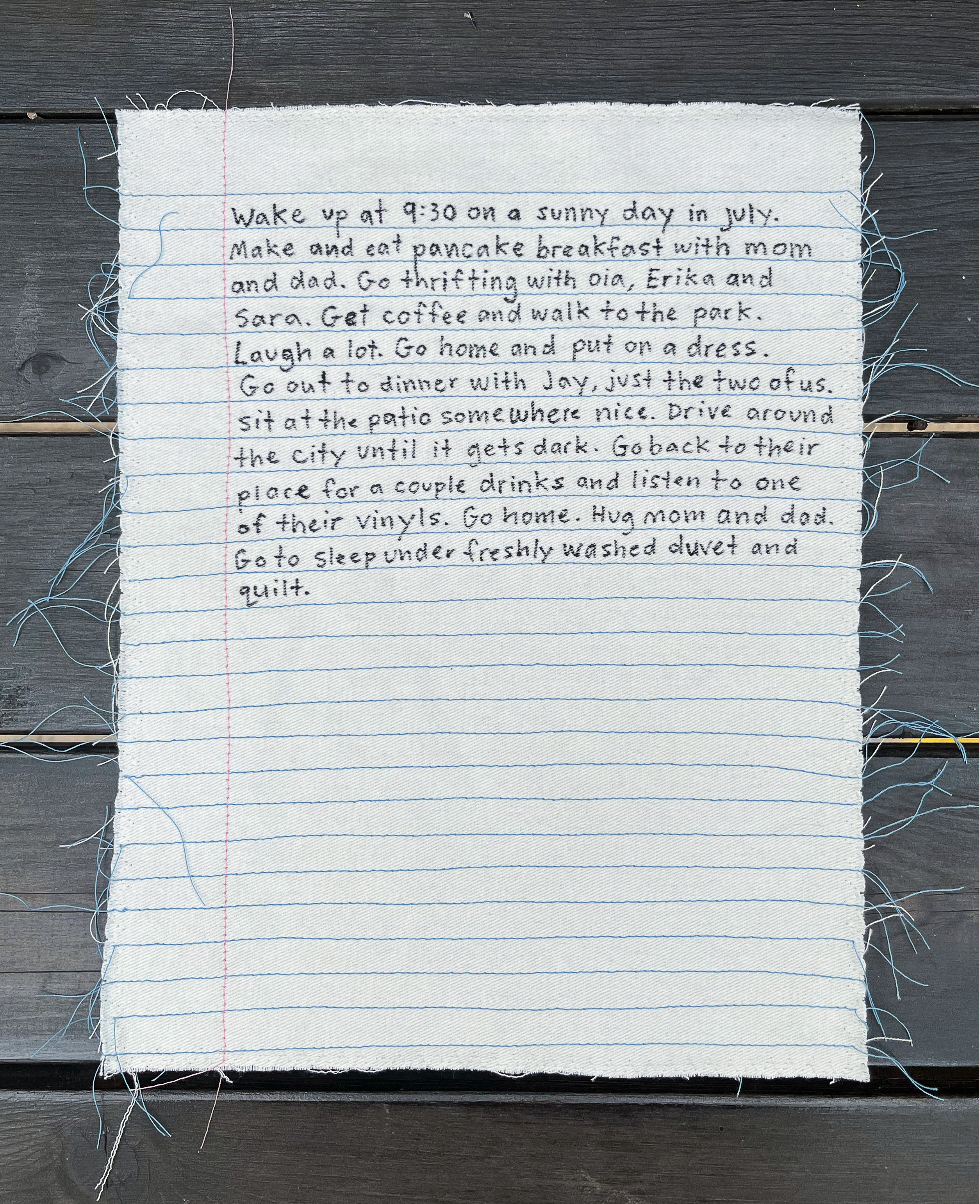 Wake up at 9:30 on a sunny day in july.
Make and eat pancake breakfast with mom
and dad. Go thrifting with oia, Erika and
Sara. Get coffee and walk to the park.
Laugh a lot. Go home and put on a dress.
Go out to dinner with Jay, just the two of us.
Sit at the patio somewhere nice. Drive around
the city until it gets dark. Go back to their
place for a couple drinks and listen to one
of their vinyls. Go home. Hug mom and dad.
Go to sleep under freshly washed duvet and
quilt.